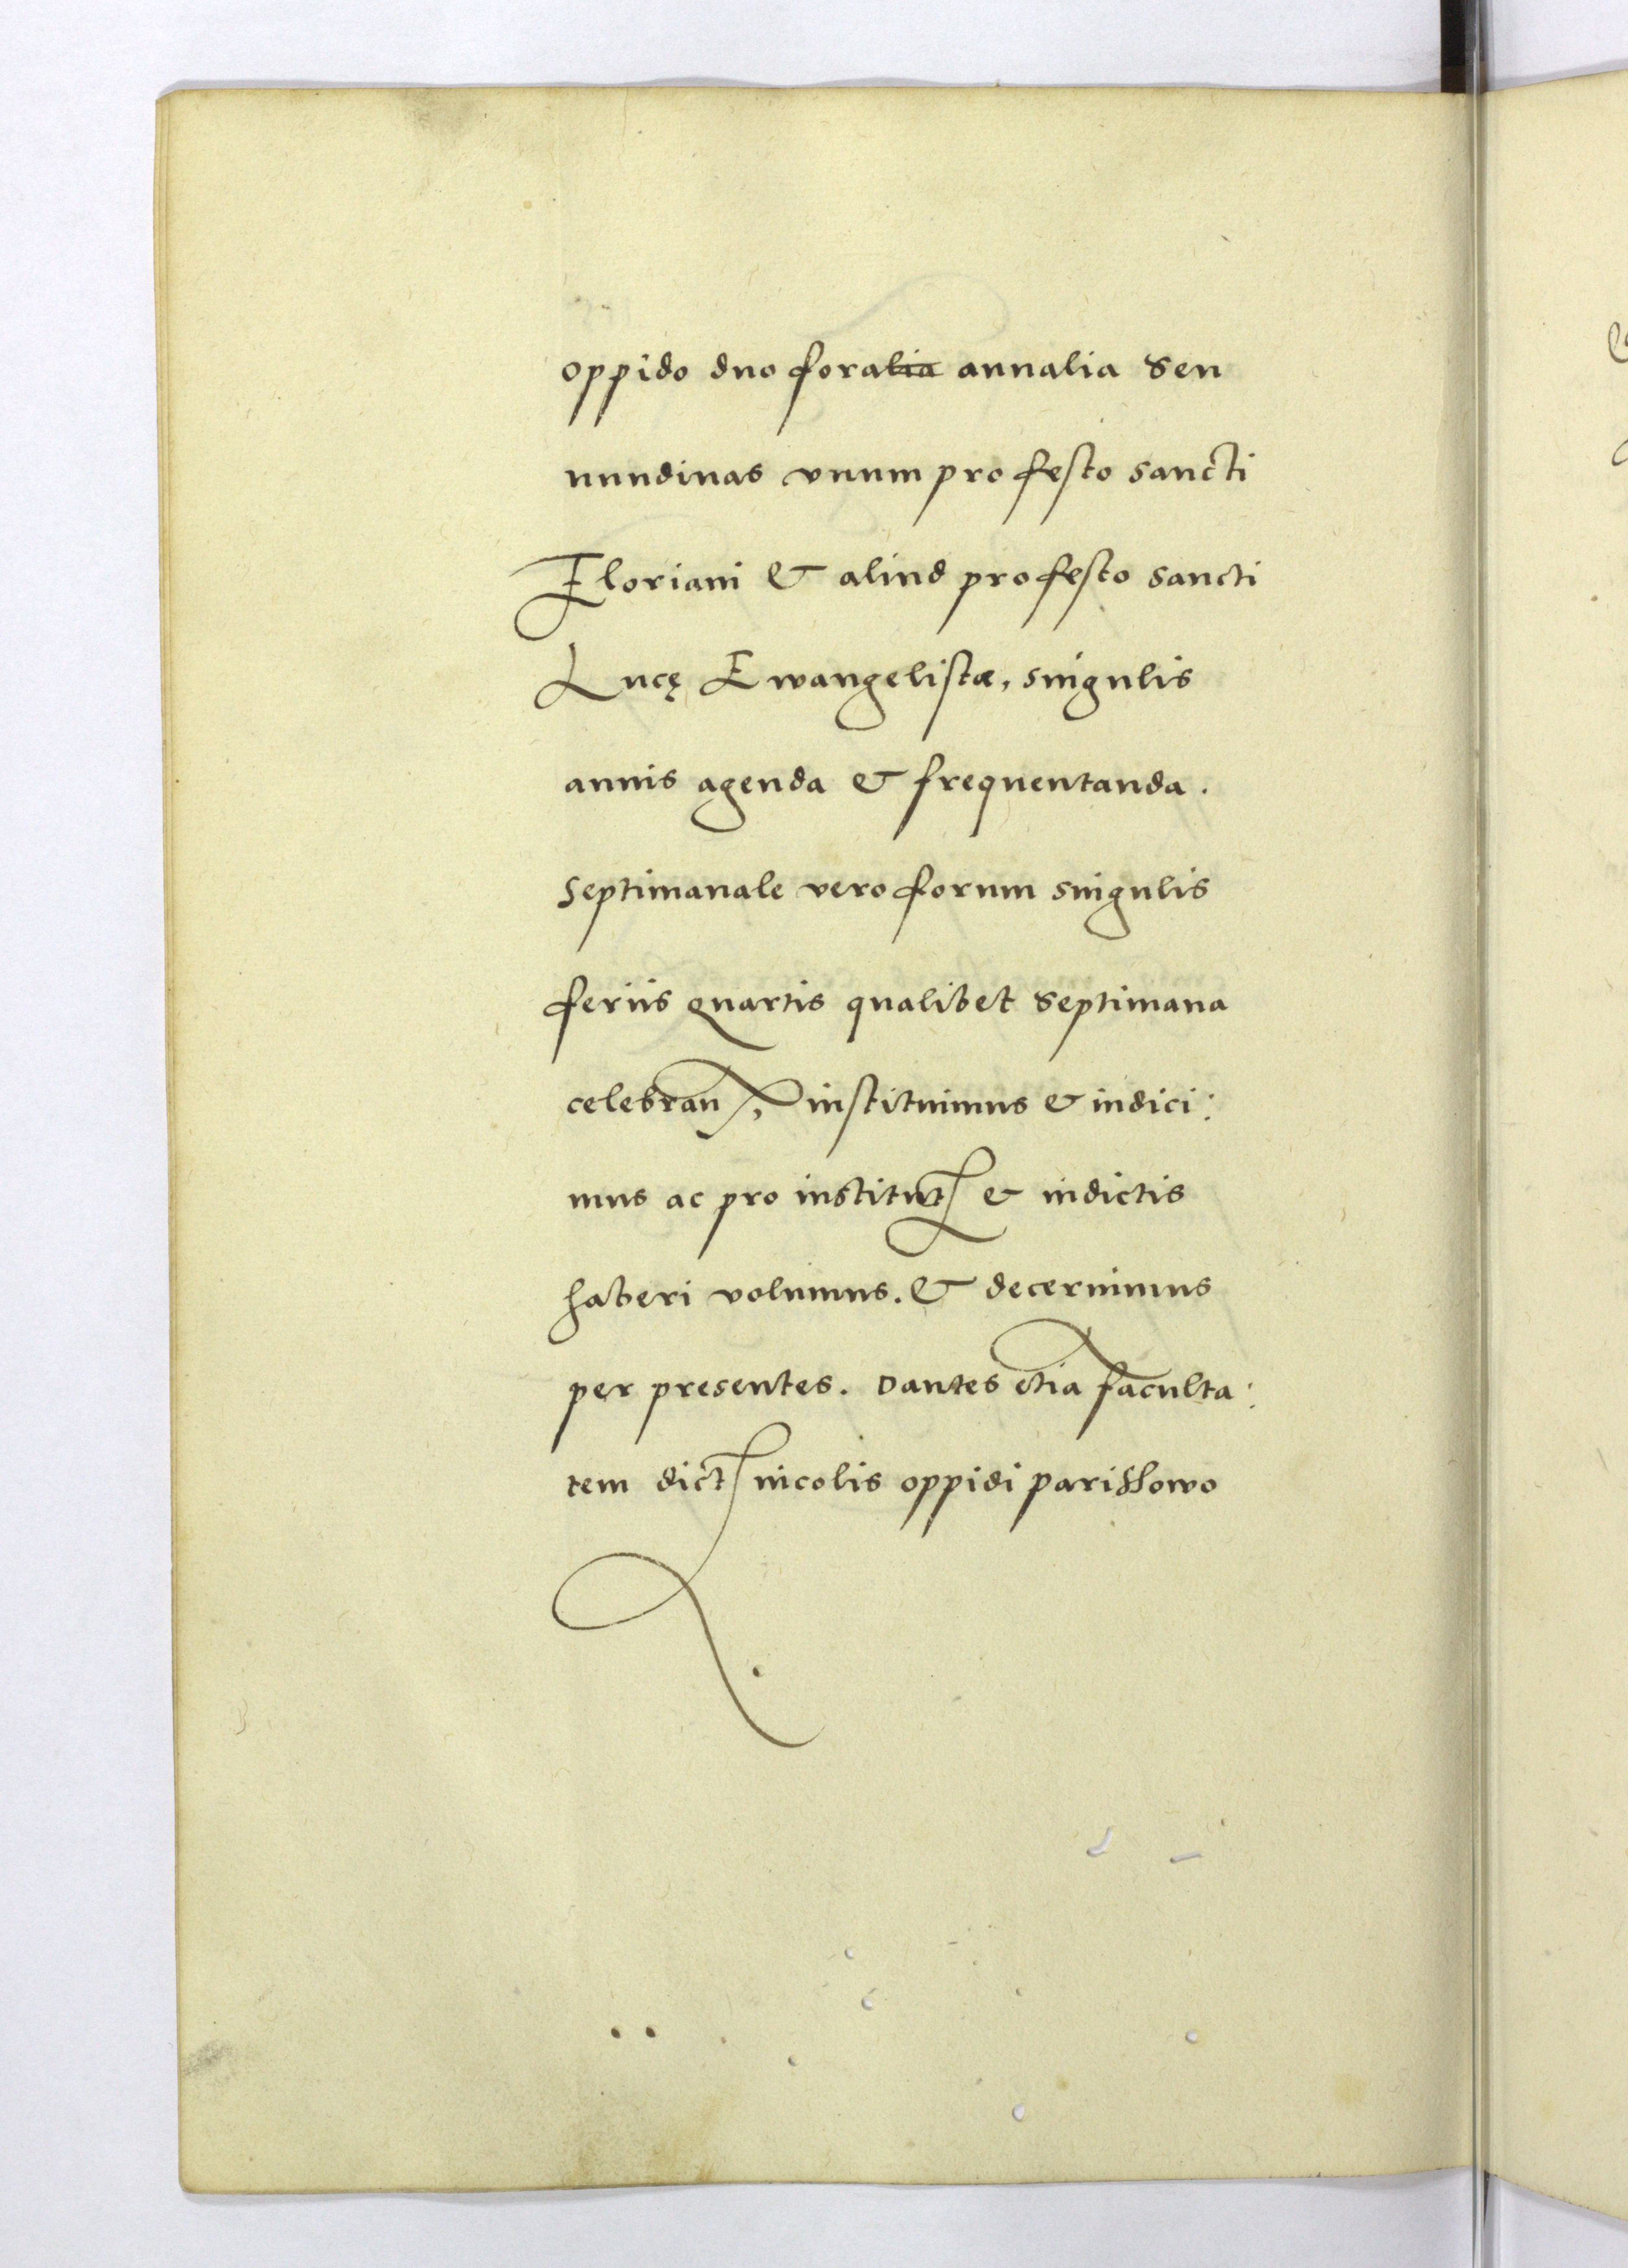 oppido duo foralia annalia seu
nundinas vnum pro festo sancti
Floriani & aliud pro festo sancti
Lucę Ewangelistæ, singulis
annis agenda & frequentanda.
Septimanale vero forum singulis
feriis quartis qualibet septimana
celebran, instituimus & indici:
mus ac pro institut & indictis
haberi volumus. & decernimus
per presentes. Dantes etiā faculta:
tem dict incolis oppidi parissowo